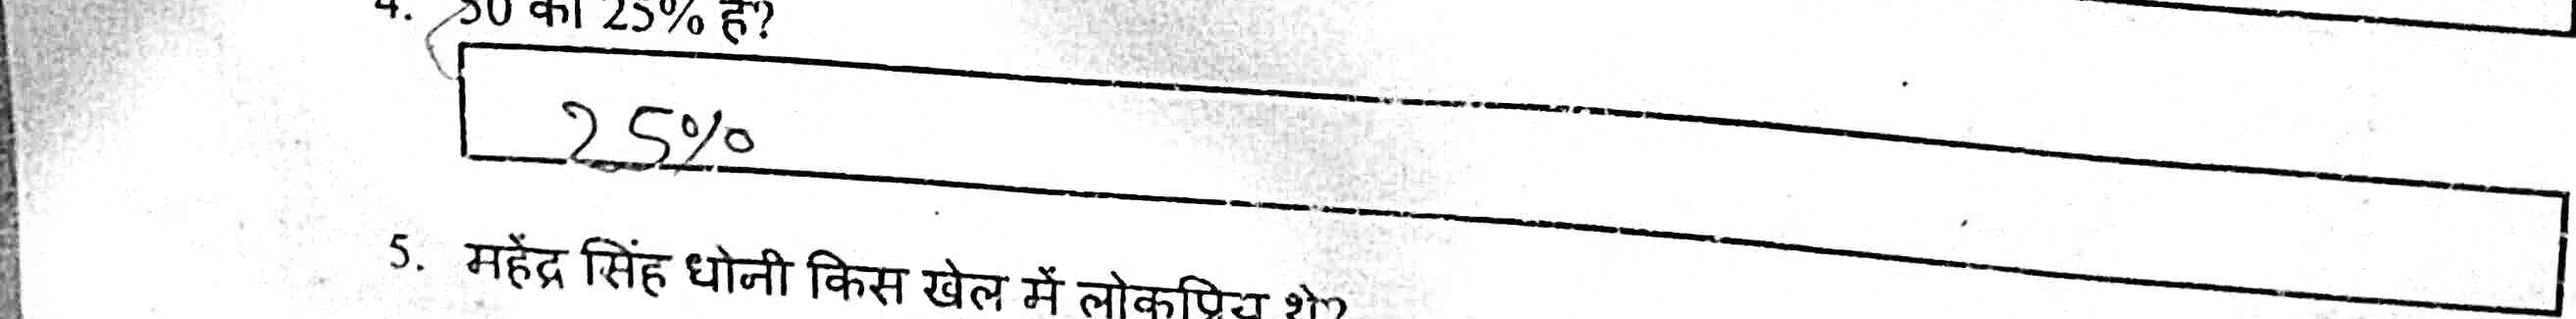 4. 50 का 25% है?
25%
5. महेंद्र सिंह धोनी किस खेल में लोकप्रिय थे?